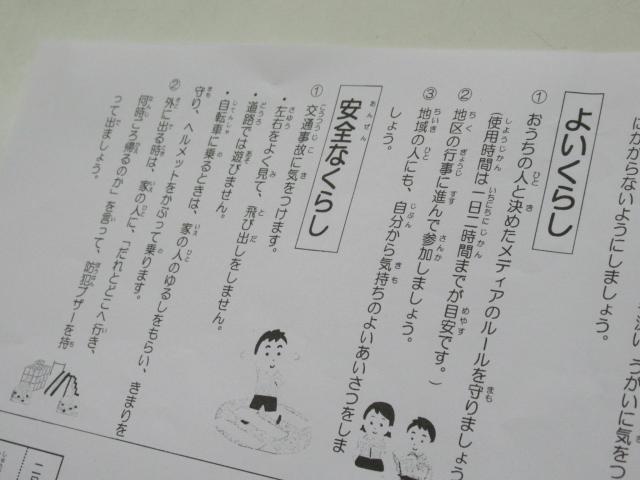 うがいに気をつ
はかからないようにしましょう。
よいくらし
① おうちの人と決めたメディアのルールを守りましょう
(使用時間は一日二時間までが目安です。)
② 地区の行事に進んで参加しましょう。
③ 地域の人にも、自分から気持ちのよいあいさつをしま
しょう。
安全なくらし
① 交通事故に気をつけます。
・左右をよく見て、飛び出しをしません。
・道路では遊びません。
・自転車に乗るときは、家の人のゆるしをもらい、きまりを
守り、ヘルメットをかぶって乗ります。
② 外に出る時は、家の人に、「だれとどこへ行き、
何時ごろ帰るのか」を言って、防犯ブザーを持
って出ましょう。